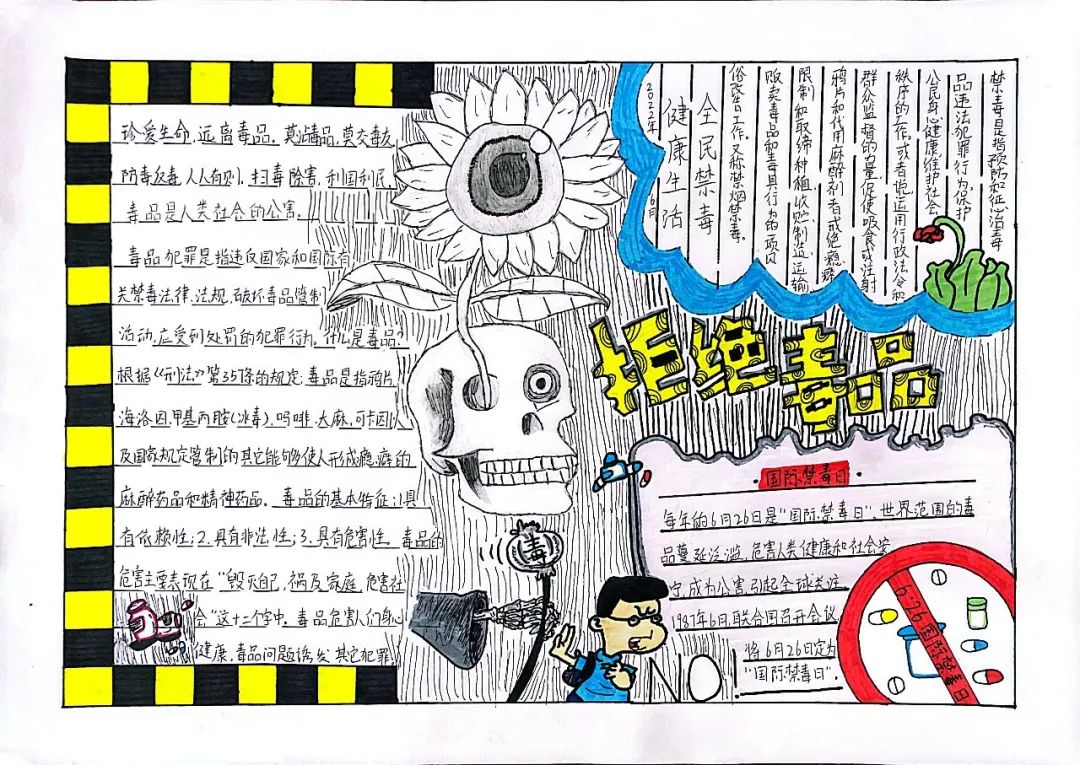 珍爱生命,远离毒品。莫沾毒品,莫交毒友,
防毒反毒,人人有则,扫毒除害,利国利民,
毒品是人类社会的公害。
毒品犯罪是指违反国家和国际有
关禁毒法律、法规,破坏毒品管制
活动,应受到处罚的犯罪行为。什么是毒品?
根据《刑法》第357条的规定:毒品是指鸦片、
海洛因、甲基丙胺(冰毒)、吗啡、大麻、可卡因以
及国家规定管制的其它能够使人形成瘾癖的
麻醉药品和精神药品。毒品的基本特征:1.具
有依赖性;2.具有非法性;3.具有危害性。毒品的
危害主要表现在“毁灭自己,祸及家庭,危害社
会”这十二个字中。毒品危害人们身心
健康,毒品问题诱发其它犯罪,
毒
禁毒是指预防和惩治毒
品违法犯罪行为,保护
公民身心健康,维护社会
秩序的工作。或者说运用行政法令和
群众监督的力量促使吸食或注射
鸦片和代用麻醉剂者戒绝瘾癖
限制和取缔种植、收贮、制造、运输
贩卖毒品和毒具行为的一项风
俗改告工作。又称禁烟禁毒。
全民禁毒
健康生活
2022年6月
拒绝毒品
·国际禁毒日·
每年的6月26日是“国际禁毒日”,世界范围的毒
品蔓延泛滥,危害人类健康和社会安
宁,成为公害,引起全球关注。
1987年6月,联合国召开会议
将6月26日定为
“国际禁毒日”。
NO!
6·26国际禁毒日